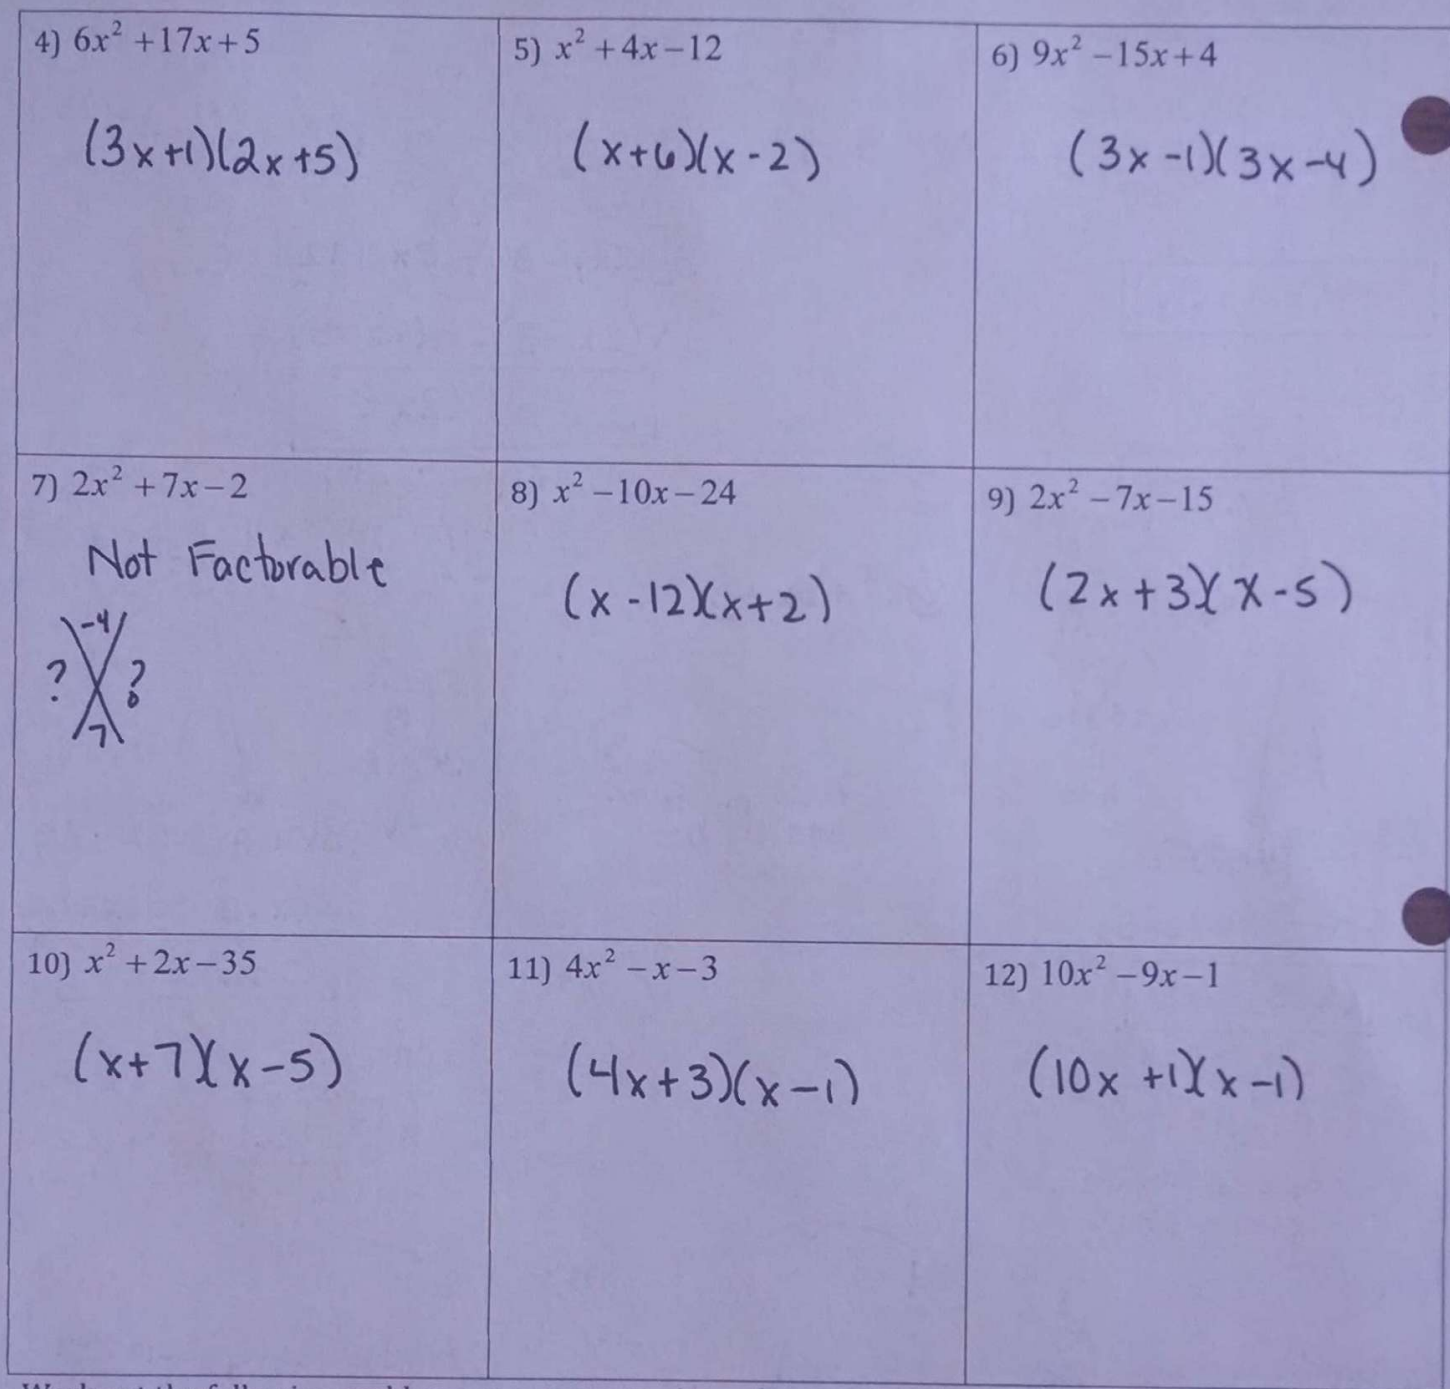 4) 6x² +17x+5
(3x+1)(2x+5)
5) x² +4x−12
(x+6)(x-2)
6) 9x² −15x+4
(3x-1)(3x-4)
7) 2x² +7x−2
Not Factorable
-4
? ?
7
8) x² −10x−24
(x-12)(x+2)
9) 2x² −7x−15
(2x+3)(x-5)
10) x² +2x−35
(x+7)(x-5)
11) 4x² −x−3
(4x+3)(x-1)
12) 10x² −9x−1
(10x+1)(x-1)